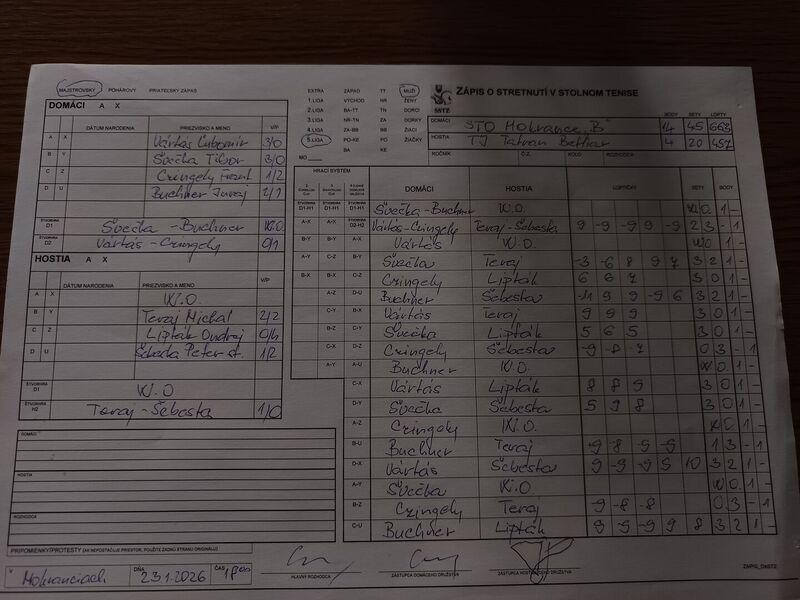 MAJSTROVSKÝ POHÁROVÝ PRIATEĽSKÝ ZÁPAS
DOMÁCI A X
DÁTUM NARODENIA PRIEZVISKO A MENO V/P
A X Vártás Ľubomír 3/0
B Y Švečka Tibor 3/0
C Z Czingely Frant 1/2
D U Buchner Juraj 2/1
ŠTVORHRA D1 Švečka - Buchner W.O.
ŠTVORHRA D2 Vártás - Czingely 0/1
HOSTIA A X
DÁTUM NARODENIA PRIEZVISKO A MENO V/P
A X W.O.
B Y Teraj Michal 2/2
C Z Lipták Ondrej 0/4
D U Šebesta Peter st. 1/2
ŠTVORHRA D1 W.O
ŠTVORHRA H2 Teraj - Šebesta 1/0
DOMÁCI
HOSTIA
ROZHODCA
PRIPOMIENKY/PROTESTY (AK NEPOSTAČUJE PRIESTOR, POUŽITE ZADNÚ STRANU ORIGINÁLU)
V Mokranciach DŇA 23.1.2026 ČAS 18°°
EXTRA ZÁPAD TT MUŽI
1.LIGA VÝCHOD NR ŽENY
2.LIGA BA-TT TN DORCI
3.LIGA NR-TN ZA DORKY
4.LIGA ZA-BB BB ŽIACI
5.LIGA PO-KE PO ŽIAČKY
MO KE
SSTZ
ZÁPIS O STRETNUTÍ V STOLNOM TENISE
BODY SETY LOPTY
DOMÁCI STO Mokrance "B" 14 45 663
HOSTIA TJ Tatran Betliar 4 20 457
ROČNÍK Č.Z. KOLO ROZHODCA
HRACÍ SYSTÉM
DOMÁCI HOSTIA LOPTIČKY SETY BODY
D1-H1 D1-H1 D1-H1 Švečka - Buchner W.O. W O 1 -
A-X D2-H2 Vártás - Czingely Teraj - Šebesta 9 -9 -9 9 -9 2 3 - 1
B-Y B-Y A-X Vártás W.O. W O 1 -
A-Y C-Z B-Y Švečka Teraj -3 -6 8 9 7 3 2 1 -
B-X B-X C-Z Czingely Lipták 6 6 7 3 0 1 -
A-Z D-U Buchner Šebesta -11 9 9 -9 6 3 2 1 -
C-Y B-X Vártás Teraj 9 9 9 3 0 1 -
B-Z C-Y Švečka Lipták 5 6 5 3 0 1 -
C-X D-Z Czingely Šebesta -9 -8 -7 0 3 - 1
A-Y A-U Buchner W.O. W O 1 -
C-X Vártás Lipták 8 8 9 3 0 1 -
D-Y Švečka Šebesta 5 9 8 3 0 1 -
A-Z Czingely W.O. W O 1 -
B-U Buchner Teraj -9 -8 9 -9 1 3 - 1
D-X Vártás Šebesta 9 -9 -9 9 10 3 2 1 -
A-Y Švečka W.O W O 1 -
B-Z Czingely Teraj -9 -8 -8 0 3 - 1
C-U Buchner Lipták 9 -9 -9 9 8 3 2 1 -
HLAVNÝ ROZHODCA ZÁSTUPCA DOMÁCEHO DRUŽSTVA ZÁSTUPCA HOSŤUJÚCEHO DRUŽSTVA